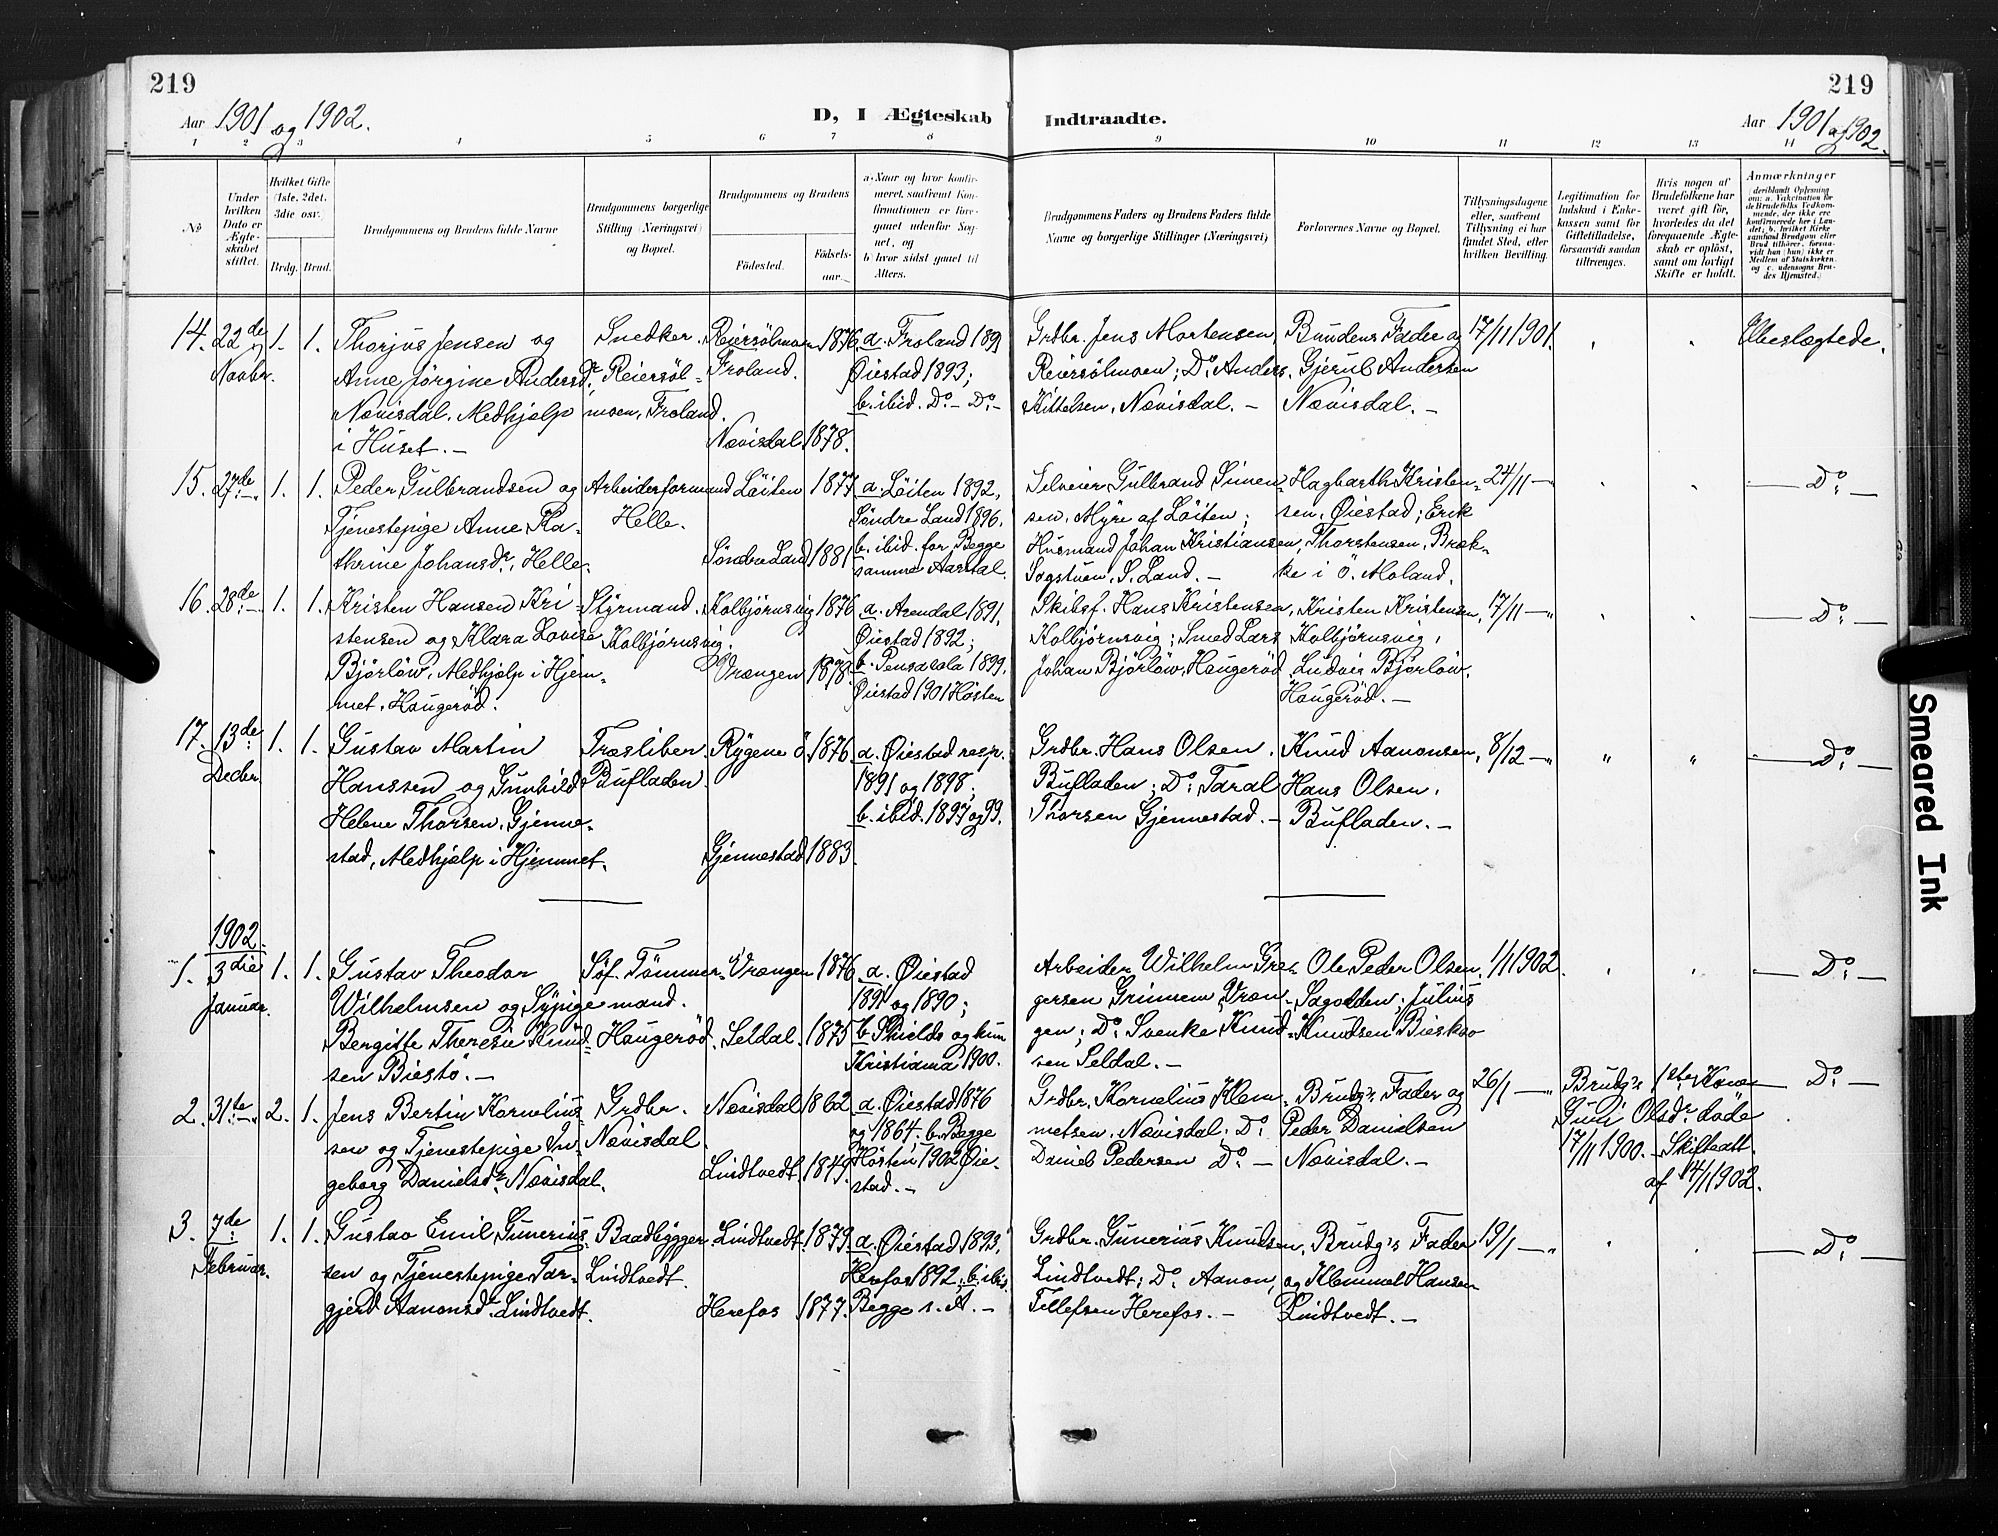 219
219
Aar 1901 og 1902.
D, I Ægteskab Indtraadte.
Aar 1901 og 1902.
1 2 3 4 5 6 7 8 9 10 11 12 13 14
No
Under hvilken Dato er Ægteskabet stiftet.
Hvilket Gifte (1ste, 2det, 3die osv.)
Brdg. Brud.
Brudgommens og Brudens fulde Navne
Brudgommens borgerlige Stilling (Næringsvei) og Bopæl.
Brudgommens og Brudens
Fødested. Fødselsaar.
a. Naar og hvor konfirmeret, saafremt Konfirmationen er foregaaet udenfor Sognet, og
b. hvor sidst gaaet til Alters.
Brudgommens Faders og Brudens Faders fulde Navne og borgerlige Stillinger (Næringsvei)
Forlovernes Navne og Bopæl.
Tillysningsdagene eller, saafremt Tillysning ei har fundet Sted, efter hvilken Bevilling.
Legitimation for Indskud i Enkekassen samt for Giftetilladelse, forsaavidt saadan tiltrænges.
Hvis nogen af Brudefolkene har været gift før, hvorledes da det foregaaende Ægteskab er opløst, samt om lovligt Skifte er holdt.
Anmærkninger
(deriblandt Oplysning om: a. Vakcination for de Brudefolks Vedkommende, der ikke ere konfirmerede her i Landet; b. hvilket Kirkesamfund Brudgom eller Brud tilhører, forsaavidt han (hun) ikke er Medlem af Statskirken, og c. udensogns Brudes Hjemsted.)
14. 22de Novbr. 1. 1.
Thorjus Jensen og
Anne Jørgine Andersdr.
Nævisdal. Medhjælp
i Huset. —
Snedker.
Reiersøl-
moen, Froland.
Reiersølmoen 1876.
Froland.
Nævisdal 1878.
a. Froland 1891
Øiestad 1893;
b. ibid. Do — Do —
Grdbr. Jens Mortensen,
Reiersølmoen; Do Anders
Kittelsen, Nævisdal. —
Brudens Fader og
Gjerul Andersen
Nævisdal. —
17/11 1901.
Ubeslægtede.
15. 27de — 1. 1.
Peder Gulbrandsen og
Tjenestepige Anne Ka-
thrine Johansdr. Helle.
Arbeiderformand
Helle.
Løiten 1877
Søndre Land 1881
a. Løiten 1892,
Søndre Land 1896.
b. ibid. for Begge
samme Aarstal.
Selveier Gulbrand Simen-
sen, Myre af Løiten;
Husmand Johan Kristiansen,
Sogstuen, S. Land. —
Hagbarth Kristen-
sen, Øiestad; Erik
Thorstensen, Bræk-
ke i Ö. Moland.
24/11 —
— Do —
16. 28de — 1. 1.
Kristen Hansen Kri-
stensen og Klara Lovise
Bjørløw, Medhjælp i Hjem-
met, Haugerød.
Styrmand.
Kolbjørnsvig.
Kolbjørnsvig 1876
Vrængen 1878.
a. Arendal 1891,
Øiestad 1892;
b. Pensacola 1899,
Øiestad 1901 Høsten
Skibsf. Hans Kristensen,
Kolbjørnsvig; Smed Lars
Johan Bjørløw, Haugerød
Kristen Kristensen,
Kolbjørnsvig,
Ludvig Bjørløw,
Haugerød. —
17/11 — "
— Do —
17. 13de Decbr. 1. 1.
Gustav Martin
Hanssen og Gunhild
Helene Thorsen, Gjenne-
stad, Medhjælp i Hjemmet.
Træsliber.
Bufladen.
Rygene ö. 1876
Gjennestad 1883.
a. Øiestad resp.
1891 og 1898;
b. ibid. 1897 og 99.
Grdbr. Hans Olsen,
Bufladen; Do Taral
Thorsen Gjennestad. —
Knud Aanonsen,
Hans Olsen,
Bufladen. —
8/12 — " " "
— Do —
1902.
1. 3die Januar. 1. 1.
Gustav Theodor
Wilhelmsen og Sypige
Bergitte Theresie Knud-
sen Biestø. —
Søf. Tømmer-
mand.
Haugerød.
Vrængen 1876
Seldal. 1875
a. Øiestad
1891 og 1890;
b. Shields og hun
Kristiania 1900.
Arbeider Wilhelm Gre-
gersen Grinnem, Vræn-
gen; Do Svenke Knud-
sen Seldal. —
Ole Peder Olsen,
Sagolden; Julius
Knudsen
1/1 1902.
— Do —
2. 31te — 2. 1.
Jens Bertin Kornelius-
sen og Tjenestepige In-
geborg Danielsdr. Nævisdal.
Grdbr.
Nævisdal.
Nævisdal 1862
Lindtvedt. 1849.
a. Øiestad 1876
og 1864; b. Begge
Høsten 1902 Øie-
stad. —
Grdbr. Kornelius Klem-
metsen, Nævisdal, Do
Daniel Pedersen Do —
Brudg's Fader og
Peder Danielsen
Nævisdal. —
26/1 — "
Brudg's 1ste Kone
Guri Olsdr. døde
17/11 1900. — Skifteatt.
af 14/1 1902.
— Do —
3. 7de Februar. 1. 1.
Gustav Emil Gunerius-
sen og Tjenestepige Tar-
gjerd Aanonsdr. Lindtvedt.
Baadbygger.
Lindtvedt.
Lindtvedt. 1879.
Herefos 1877.
a. Øiestad 1893,
Herefos 1892, b. ibid.
Begge s. A. —
Grdbr. Gunerius Knudsen,
Lindtvedt; Do Aanon
Tellefsen Herefos. —
Brudg's Fader
og Klemmet Hansen
Lindtvedt. —
19/1 — "
— Do —
Smeared Ink